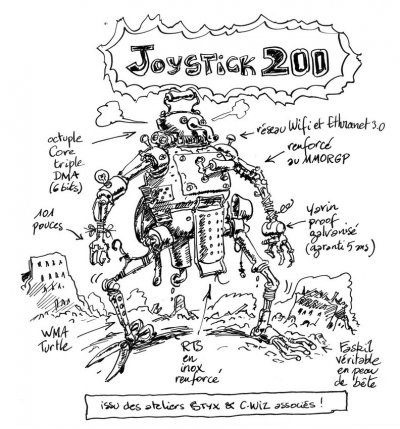 JOYSTICK 200
octuple
Core
triple
DMA
(6 bits)
réseau Wifi et Ethranet 3.0
renforcé
au MMORGP
101
pouces
yarin
proof
galvanisé
(garanti 5 ans)
WMA
Turtle
RTS
en
inox
renforcé
Faskil
véritable
en peau
de bête
issu des ateliers STYX & C-WIZ associés !